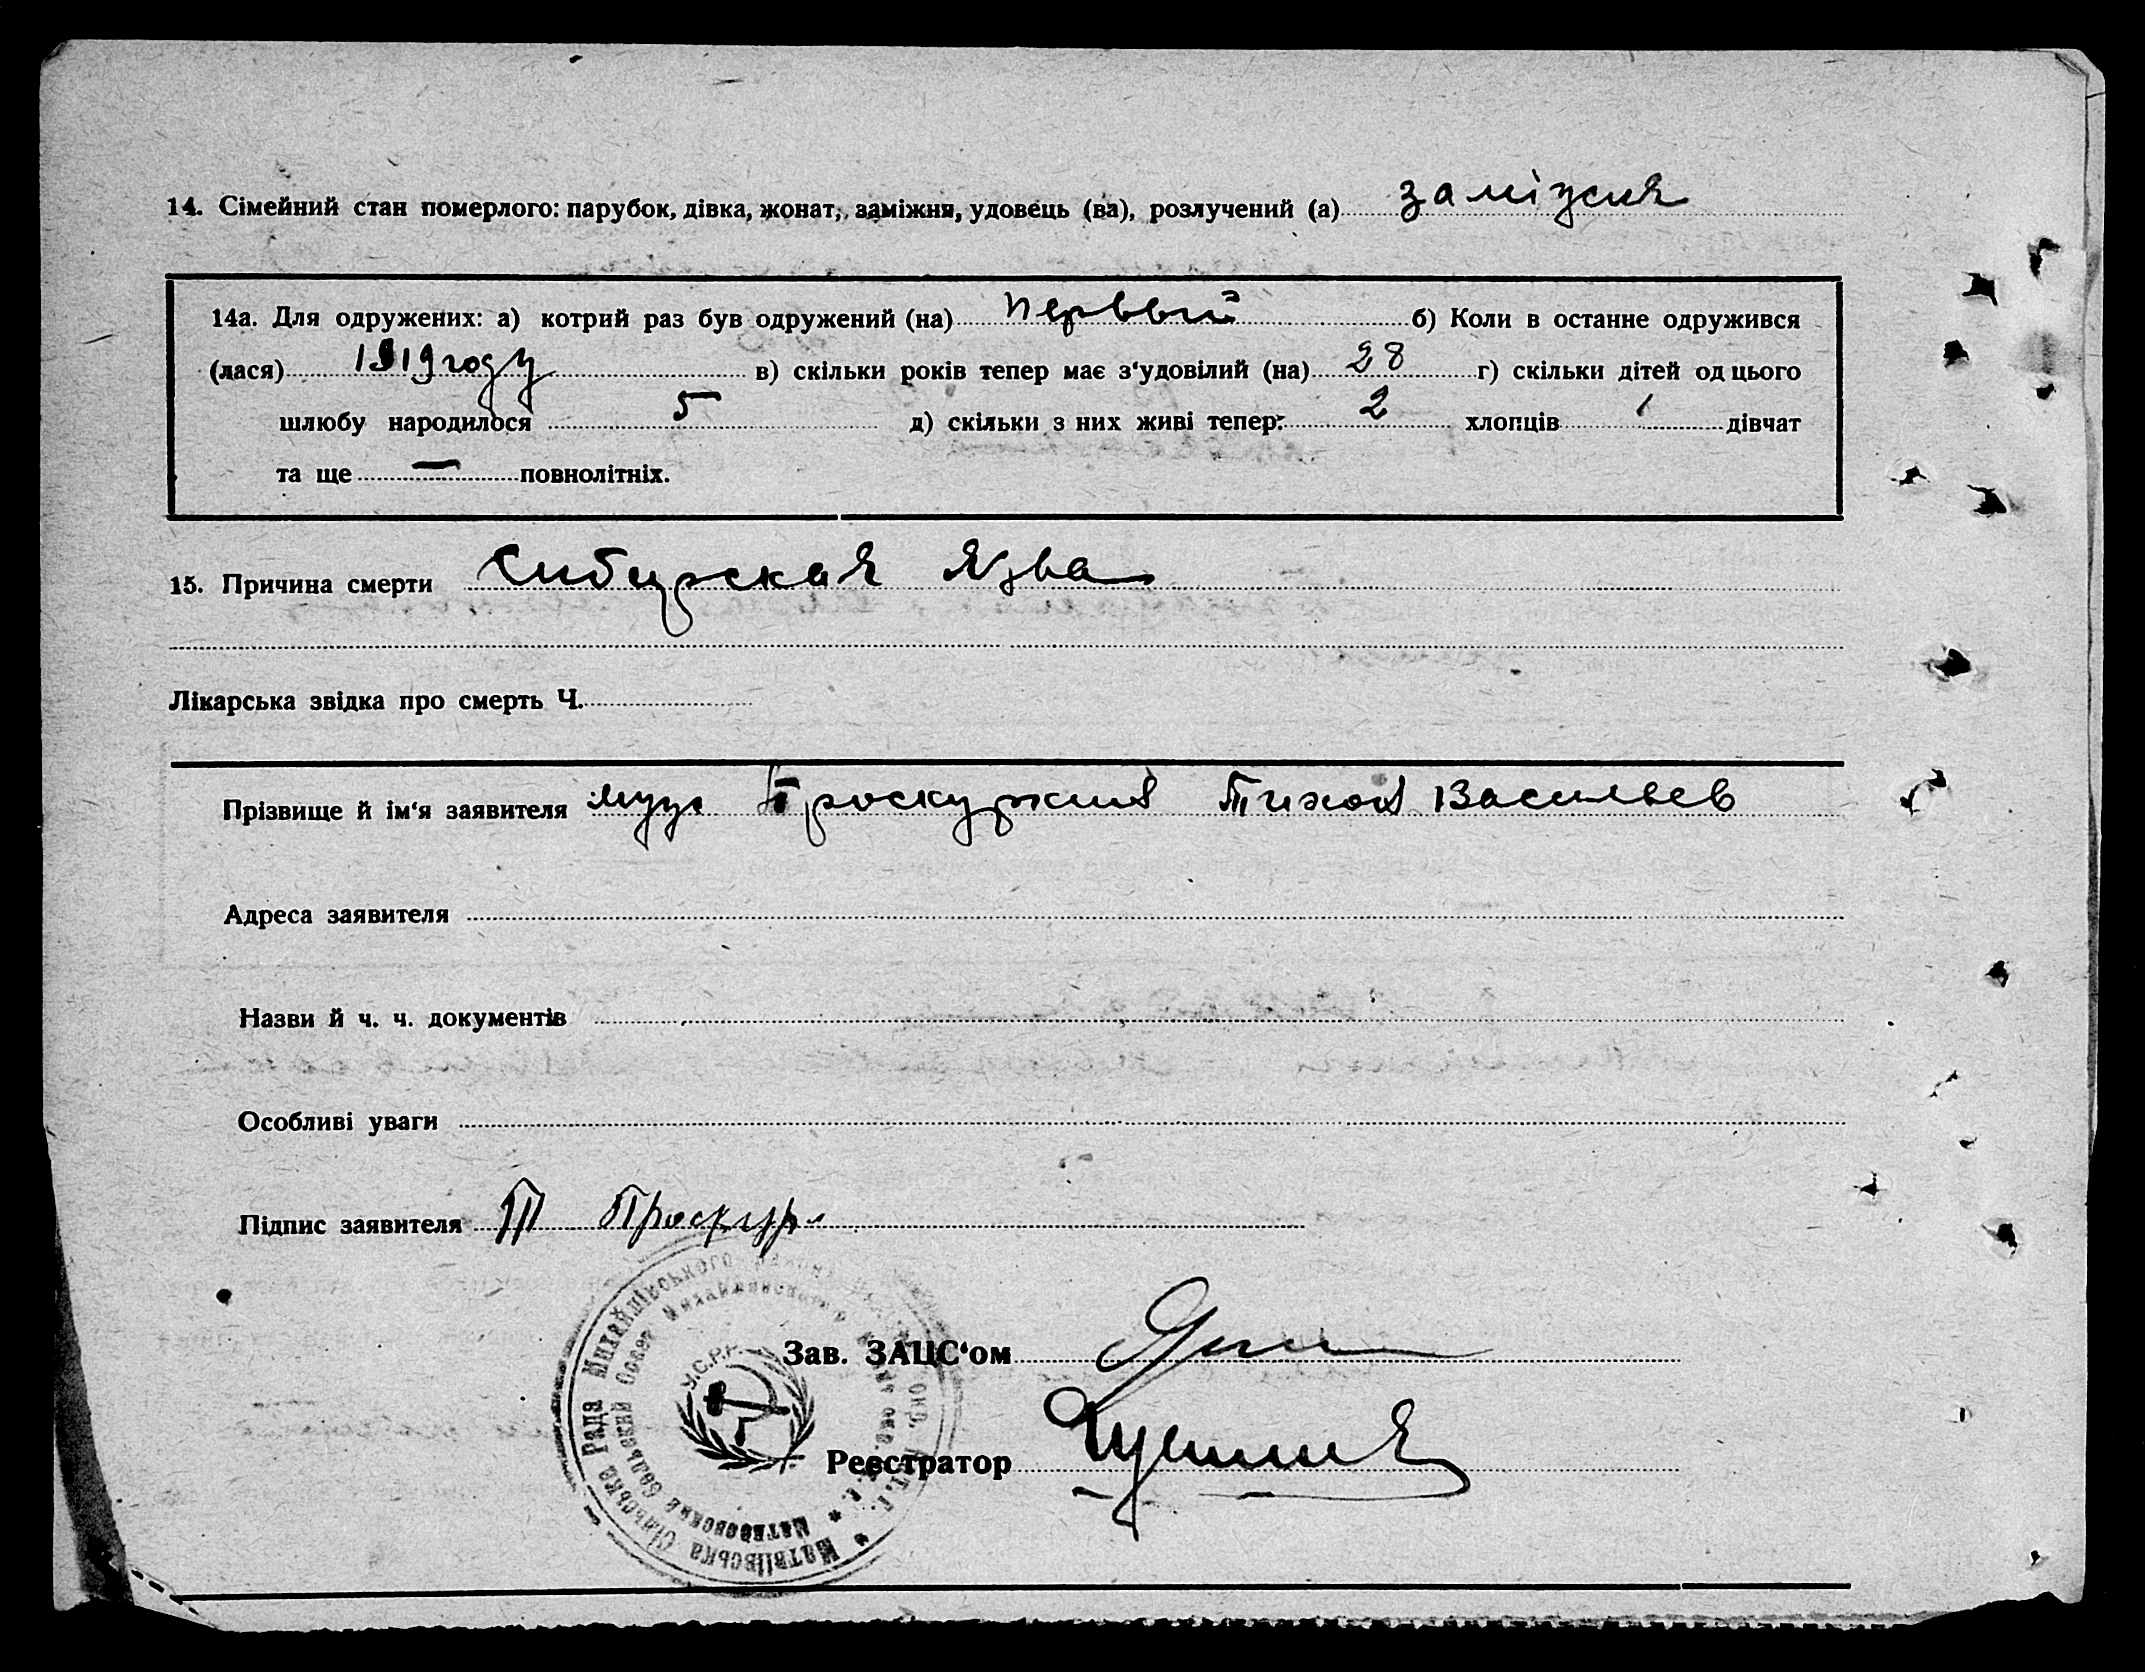 14. Сімейний стан померлого: парубок, дівка, жонат, заміжня, удовець (ва), розлучений (а) заміжня
14а. Для одружених: а) котрий раз був одружений (на) первый б) Коли в останне одружився
(лася) 1919 году в) скільки років тепер має з'удовілий (на) 28 г) скільки дітей од цього
шлюбу народилося 5 д) скільки з них живі тепер: 2 хлопців 1 дівчат
та ще — повнолітніх.
15. Причина смерти Сибирская язва
Лікарська звідка про смерть Ч.
Прізвище й ім'я заявителя муж Проскурнин Тихон Васильев
Адреса заявителя
Назви й ч. ч. документів
Особливі уваги
Підпис заявителя Т Проскур
Зав. ЗАЦС'ом
Реєстратор
Матвіївська Сільська Рада Михайлівського
Матвеевский Сельский Совет Михайловского
У.С.Р.Р.